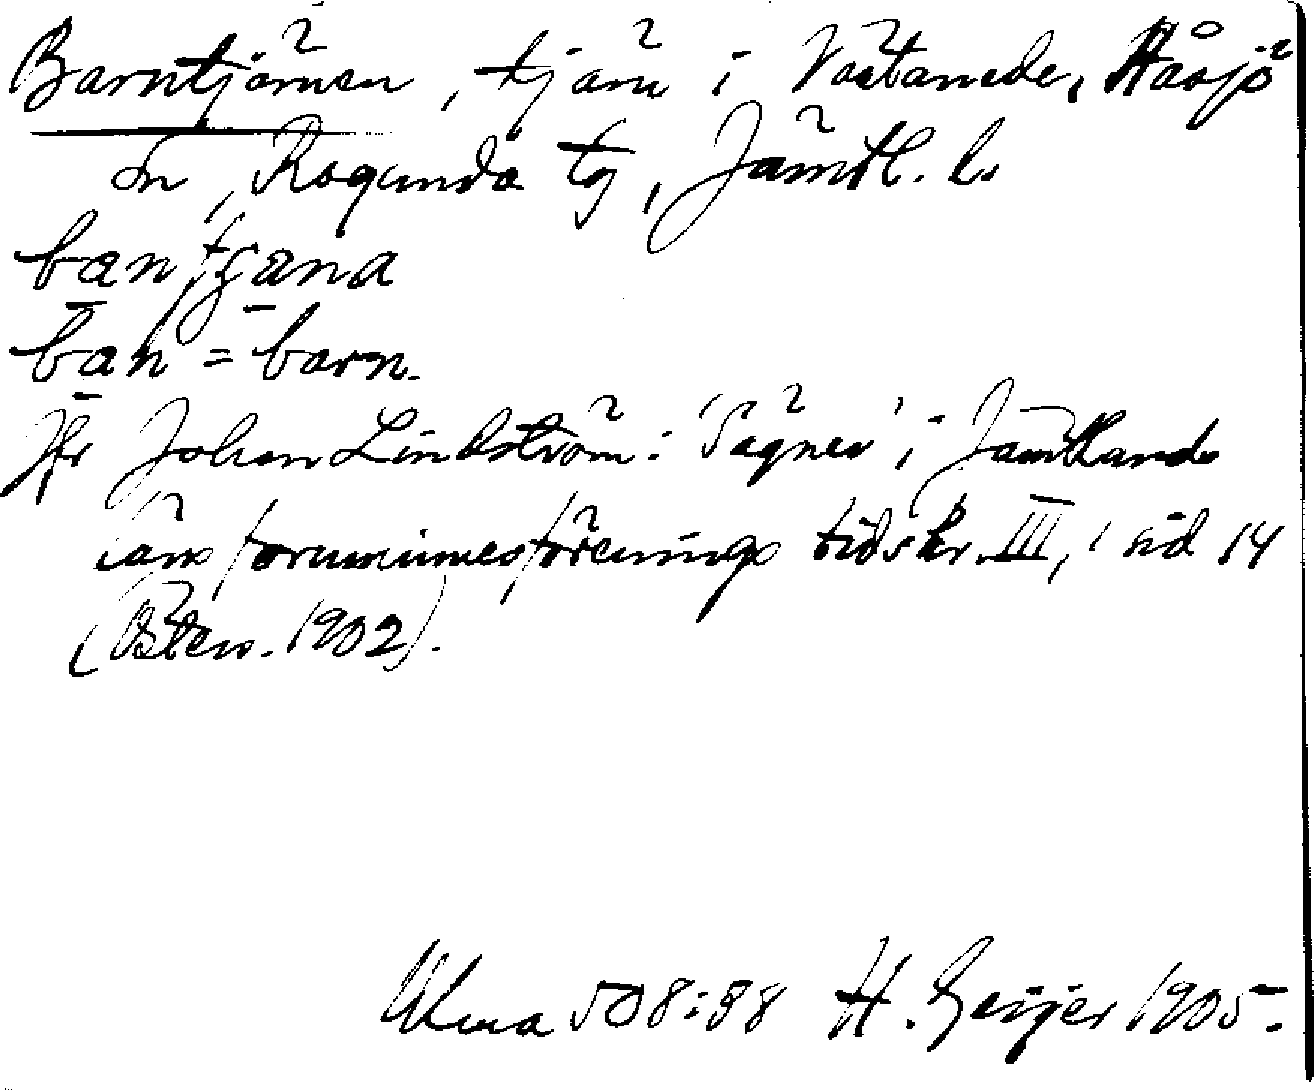 Barntjärnen, tjärn i Västanede, Håsjö
sn, Ragunda tg, Jämtl. l.
ban
ban = barn.
Jfr Johan Lindström: 'Sägner' i Jämtlands
läns fornminnesförenings tidskr. III, sid 14
(Östers. 1902).
Ulma 508:88 H. Geijer 1905.